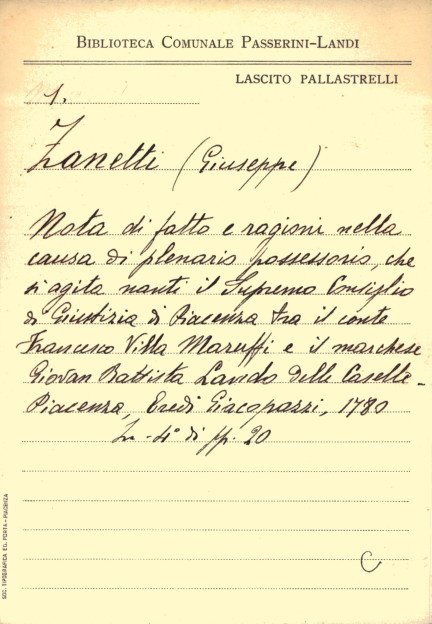 BIBLIOTECA COMUNALE PASSERINI-LANDI
LASCITO PALLASTRELLI
1.
Zanetti (Giuseppe)
Nota di fatto e ragioni nella
causa di plenario possessorio, che
si agita nanti il Supremo Consiglio
di Giustizia di Piacenza tra il conte
Francesco Villa Maruffi e il marchese
Giovan Battista Lando delle Caselle -
Piacenza, Eredi Giacopazzi, 1780
In-4° di pp. 20
C
SOC. TIPOGRAFICA ED. PORTA - PIACENZA